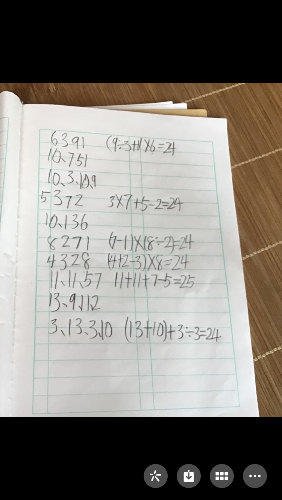 6391 (9÷3+1)×6=24
10、751
10、3、10、9
5372 3×7+5-2=24
10、136
8271 (7-1)×(8÷2)=24
4328 (4+2-3)×8=24
11、11、57 11+11+7-5=25
13、9、1、12
3、13、3、10 (13+10)+3÷3=24